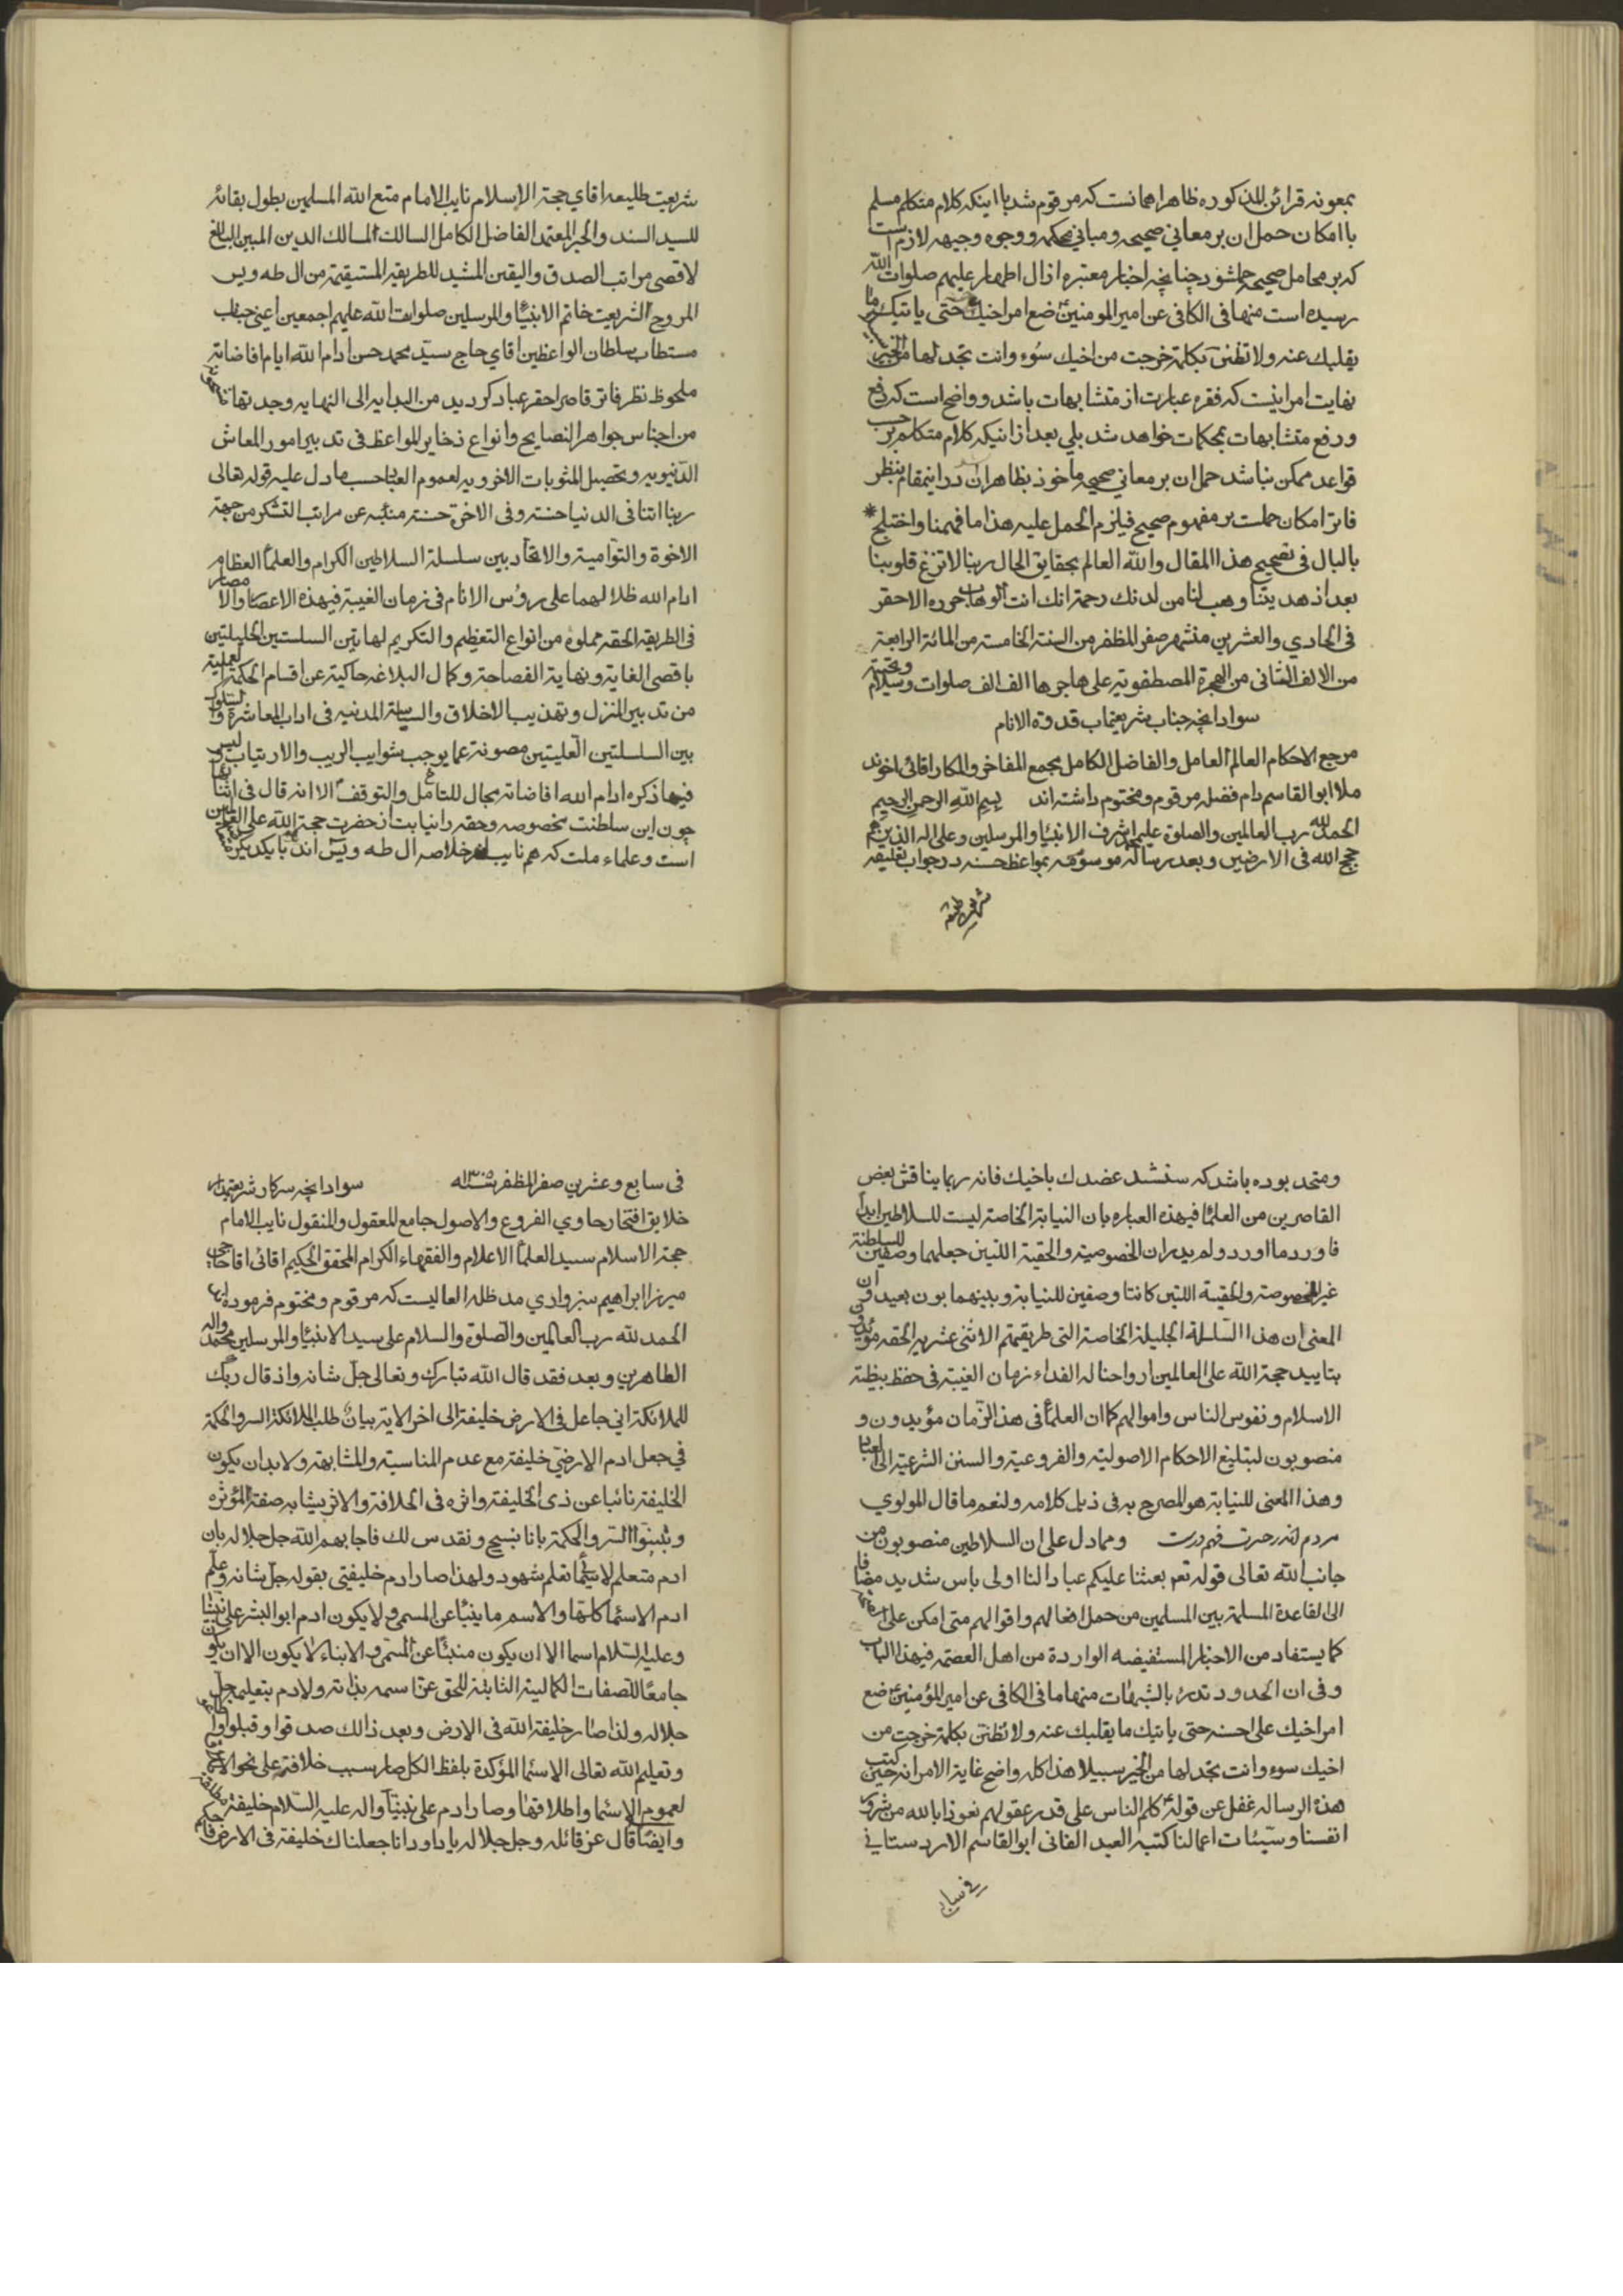 بمعونه قرائن المذكوره ظاهرا همانست كه مرقوم شد با اينكه كلام متكلم مسلم
با امكان حمل ان بر معاني صحيحه و مباني محكمه و وجوه وجيهه لازم است
كه بر محامل صحيحه حمل شود چنانچه اخبار معتبره از ال اطهار عليهم صلوات الله
رسيده است منها في الكافي عن امير المومنين ضع امر اخيك حتى ياتيك ما
يقلبك عنه ولا تظنن بكلمة خرجت من اخيك سوء وانت تجد لها من الخير
نهايت امر اينست كه فقره عبارت از متشابهات باشد و واضح است كه رفع
ورفع متشابهات بمحكمات خواهد شد بلي بعد از انيكه كلام متكلم بر حسب
قواعد ممكن نباشد حمل ان بر معاني صحيحه ماخوذ بظاهر ان در اينمقام بنظر
فاتر امكان حملست بر مفهوم صحيح فيلزم الحمل عليه هذا ما فهمنا واختلج
بالبال في تصحيح هذا المقال والله العالم بحقايق الحال ربنا لا تزغ قلوبنا
بعد اذ هديتنا وهب لنا من لدنك رحمة انك انت الوهاب حرره الاحقر
في الحادي والعشرين من شهر صفر المظفر من السنة الخامسة من المائة الرابعة
من الالف الثاني من الهجرة المصطفويه على هاجرها الف الف صلوات وسلام وتحيته
سواد انچه جناب شريعتماب قدوة الانام
مرجع الاحكام العالم العامل والفاضل الكامل مجمع المفاخر والمكارم اقائي اخوند
ملا ابو القاسم دام فضله مرقوم و مختوم داشته اند بسم الله الرحمن الرحيم
الحمد لله رب العالمين والصلوة على اشرف الانبياء والمرسلين وعلى اله الذين هم
حجج الله في الارضين وبعد رساله موسومه بمواعظ حسنه در جواب تعليقه
شريعت طليعه
شريعت طليعه اقاي حجة الاسلام نايب الامام متع الله المسلمين بطول بقائه
للسيد السند والحبر المعتمد الفاضل الكامل السالك لمسالك الدين المبين البالغ
لاقصى مراتب الصدق واليقين المشيد للطريقه المستقيمة من ال طه ويس
المروج لشريعت خاتم الانبياء والمرسلين صلوات الله عليهم اجمعين اعني جناب
مستطاب سلطان الواعظين اقاي حاج سيد محمد حسن ادام الله ايام افاضاته
ملحوظ نظر فاتر قاصر احقر عباد كرديد من البدايه الى النهايه وجدتها
من اجناس جواهر النصايح وانواع ذخاير المواعظ في تدبير امور المعاش
الدنيويه وتحصيل المثوبات الاخرويه لعموم العباد حسب ما دل عليه قوله تعالى
ربنا اتنا في الدنيا حسنة وفي الاخرة حسنة منبئه عن مراتب التشكر من جهة
الاخوة والتوامية والاتحاد بين سلسلة السلاطين الكرام والعلماء العظام
ادام الله ظلالهما على رؤس الانام في زمان الغيبة فيهذه الاعصار والامصار
في الطريقه الحقه مملوة من انواع التعظيم والتكريم لهاتين السلسلتين الجليلتين
باقصى الغاية ونهاية الفصاحة وكمال البلاغه حاكية عن اقسام الحكمة العملية
من تدبير المنزل وتهذيب الاخلاق والسياسة المدنيه في اداب المعاشرة والسلوك
بين السلسلتين العليتين مصونة عما يوجب شوايب الريب والارتياب وليس
فيما ذكره ادام الله افاضاته مجال للتامل والتوقف الا انه قال في اثنائها
چون اين سلطنت مخصوصه وحقه را نيابت از حضرت حجة الله على العالمين
است وعلماء ملت كه هم نايب خلاصه ال طه ويس اند با يكديگر
ومتحد بوده باشد كه سنشد عضدك باخيك فانه ربما يناقش بعض
القاصرين من العلماء فيهذه العباره بان النيابة الخاصة ليست للسلاطين ابدا
فاورد ما اورد ولم يدر ان الخصوصية والحقية اللتين جعلهما وصفين للسلطنة
غير الخصوصة والحقية اللتين كانتا وصفين للنيابة وبينهما بون بعيد وان
المعنى ان هذا السلسلة الجليلة الخاصة التي طريقتهم الاثني عشريه الحقه مؤيدون
بتاييد حجة الله على العالمين ارواحنا له الفداء زمان الغيبة في حفظ بيضة
الاسلام ونفوس الناس واموالهم كما ان العلماء في هذ الزمان مؤيدون و
منصوبون لتبليغ الاحكام الاصولية والفروعية والسنن الشرعية الى العباد
وهذا المعنى للنيابة هو المصرح به في ذيل كلامه ولنعم ما قال المولوي
مردم اندر حسرت فهم درست ومما دل على ان السلاطين منصوبون من
جانب الله تعالى قوله تع بعثنا عليكم عبادا لنا اولى باس شديد مضافا
الى القاعدة المسلمة بين المسلمين من حمل افعالهم واقوالهم متى امكن على
كما يستفاد من الاخبار المستفيضه الواردة من اهل العصمة فيهذا الباب
وفي ان الحدود تدرء بالشبهات منها ما في الكافي عن امير المؤمنين ضع
امر اخيك على احسنه حتى ياتيك ما يقلبك عنه ولا تظنن بكلمة خرجت من
اخيك سوء وانت تجد لها من الخير سبيلا هذا كله واضح غاية الامر انه حين كتب
هذه الرساله غفل عن قوله كلم الناس على قدر عقولهم نعوذ بالله من شرور
انفسنا وسيئات اعمالنا كتبه العبد الفاني ابو القاسم الاردستاني
في سابع
في سابع وعشرين صفر المظفر سنه ۱۳۰۵ سواد انچه سركار شريعتمدار
خلايق افتخار حاوي الفروع والاصول جامع المعقول والمنقول نايب الامام
حجة الاسلام سيد العلماء الاعلام والفقهاء الكرام المحقق الحكيم اقائي اقا حاجي
ميرزا ابراهيم سبزواري مد ظله العاليست كه مرقوم ومختوم فرموده اند
الحمد لله رب العالمين والصلوة والسلام على سيد الانبياء والمرسلين محمد واله
الطاهرين وبعد فقد قال الله تبارك وتعالى جل شانه واذ قال ربك
للملائكة اني جاعل في الارض خليفة الى اخر الاية بيان طلب الملائكة السر والحكمة
في جعل ادم الارضي خليفة مع عدم المناسبة والمشابهة ولابد ان يكون
الخليفة نائبا عن ذي الخليفة واثره في الخلافة والاثر يشابه صفة المؤثره
وبينوا السر والحكمة بانا نسبح ونقدس لك فاجابهم الله جل جلاله بان
ادم متعلم الاسماء تعلم شهود ولهذا صار ادم خليفتي بقوله جل شانه وعلم
ادم الاسماء كلها والاسم ما ينبئ عن المسمى ولا يكون ادم ابو البشر على نبينا
وعليه السلام اسما الا ان يكون منبئا عن المسمى والانباء لا يكون الا ان يكون
جامعا للصفات الكمالية الثابتة للحق عز اسمه بذاته ولادم بتعليمه جل
جلاله ولذا صار خليفة الله في الارض وبعد ذالك صدقوا وقبلوا
وتعليم الله تعالى الاسماء المؤكدة بلفظ الكل صار سبب خلافته على نحو الاتم
لعموم الاسماء واطلاقها وصار ادم على نبينا واله عليه السلام خليفة
وايضا قال عز قائله وجل جلاله يا داود انا جعلناك خليفة في الارض فاحكم